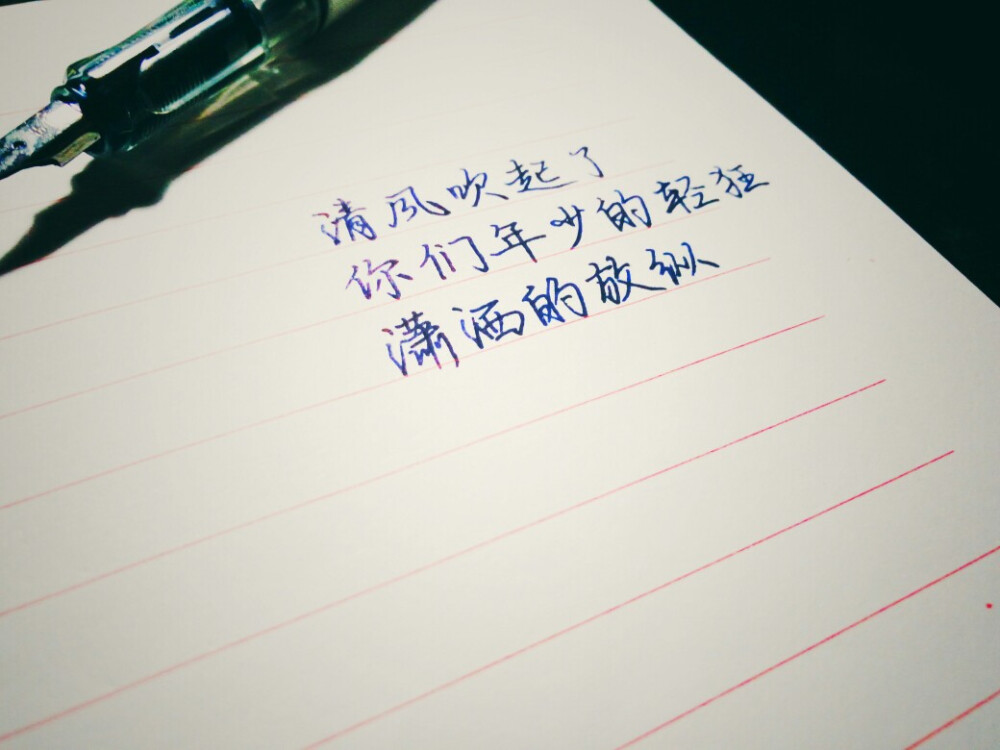 清风吹起了
你们年少的轻狂
潇洒的放纵